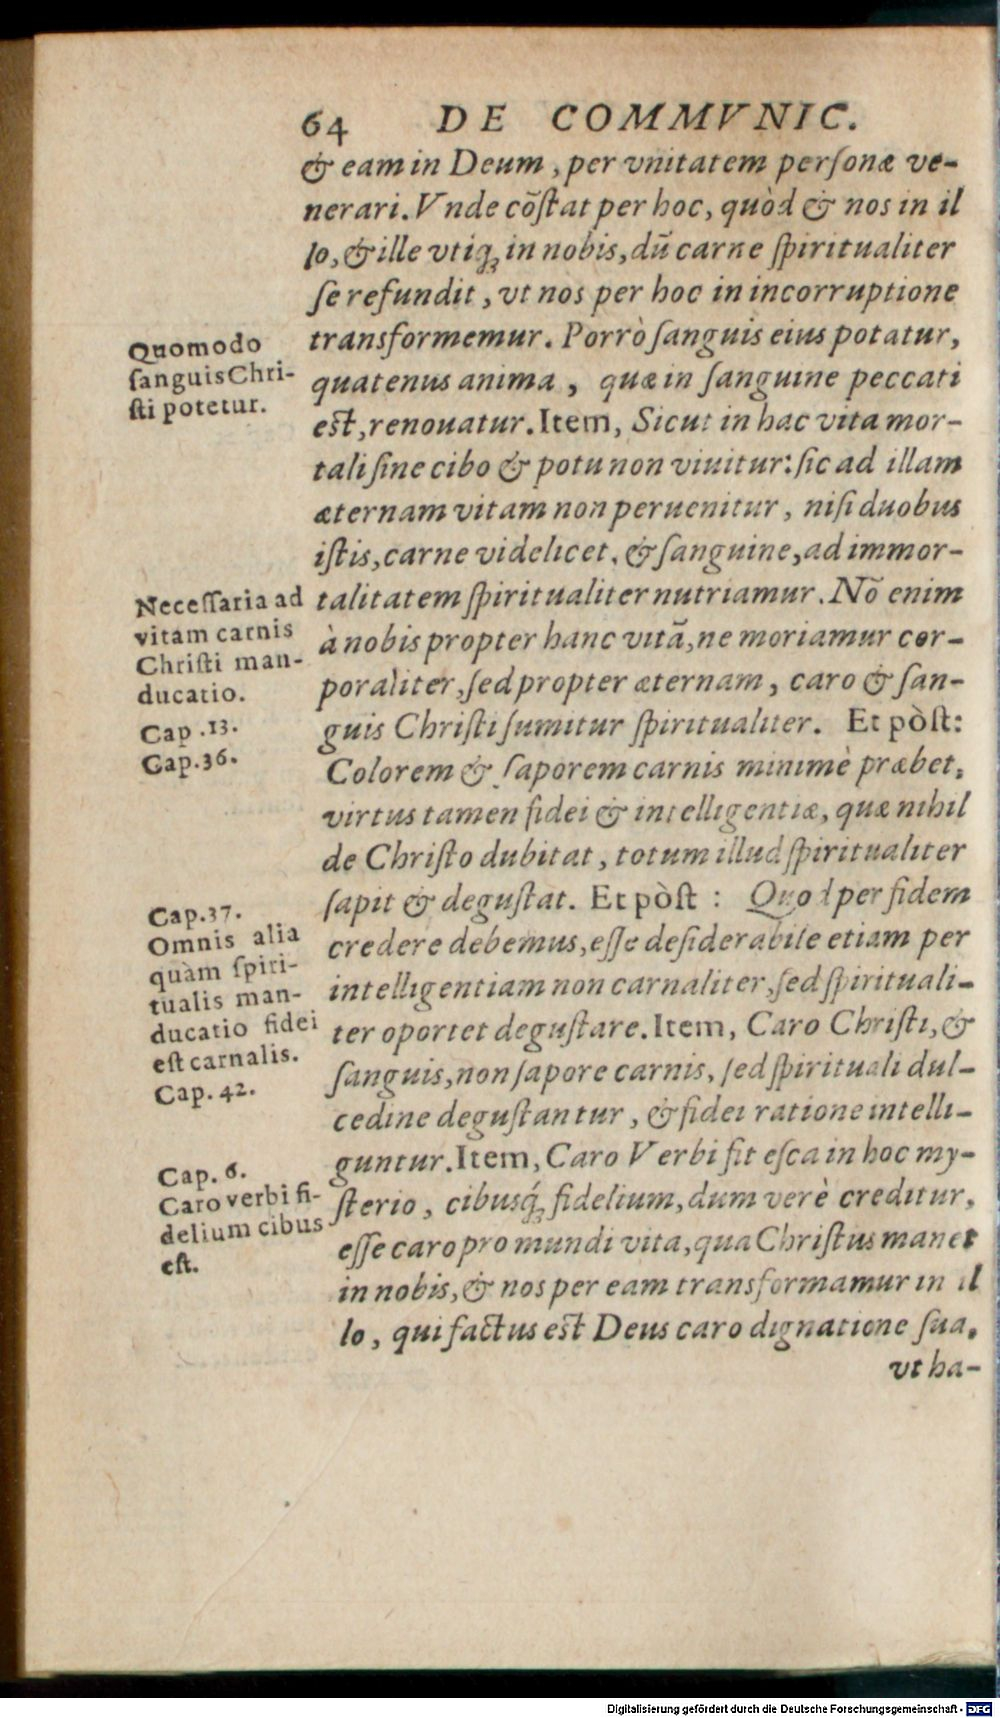 64 DE COMMVNIC.
& eam in Deum, per vnitatem perſonæ ve-
nerari. Vnde cõſtat per hoc, quòd & nos in il
lo, & ille vtiq; in nobis, dũ carne ſpiritualiter
ſe refundit, vt nos per hoc in incorruptione
transformemur. Porrò ſanguis eius potatur,
quatenus anima, quæ in ſanguine peccati
eſt, renouatur. Item, Sicut in hac vita mor-
tali ſine cibo & potu non viuitur: ſic ad illam
æternam vitam non peruenitur, niſi duobus
iſtis, carne videlicet, & ſanguine, ad immor-
talitatem ſpiritualiter nutriamur. Nõ enim
à nobis propter hanc vitã, ne moriamur cor-
poraliter, ſed propter æternam, caro & ſan-
guis Chriſti ſumitur ſpiritualiter. Et pòſt:
Colorem & ſaporem carnis minimè præbet,
virtus tamen fidei & intelligentiæ, quæ nihil
de Chriſto dubitat, totum illud ſpiritualiter
ſapit & deguſtat. Et pòſt: Quod per fidem
credere debemus, eſſe deſiderabile etiam per
intelligentiam non carnaliter, ſed ſpirituali-
ter oportet deguſtare. Item, Caro Chriſti, &
ſanguis, non ſapore carnis, ſed ſpirituali dul-
cedine deguſtantur, & fidei ratione intelli-
guntur. Item, Caro Verbi fit eſca in hoc my-
ſterio, cibusq́; fidelium, dum verè creditur,
eſſe caro pro mundi vita, qua Chriſtus manet
in nobis, & nos per eam transformamur in il
lo, qui factus eſt Deus caro dignatione ſua,
vt ha-
Quomodo
ſanguis Chri-
ſti potetur.
Neceſſaria ad
vitam carnis
Chriſti man-
ducatio.
Cap. 13.
Cap. 36.
Cap. 37.
Omnis alia
quàm ſpiri-
tualis man-
ducatio fidei
eſt carnalis.
Cap. 42.
Cap. 6.
Caro verbi fi-
delium cibus
eſt.
Digitalisierung gefördert durch die Deutsche Forschungsgemeinschaft - DFG